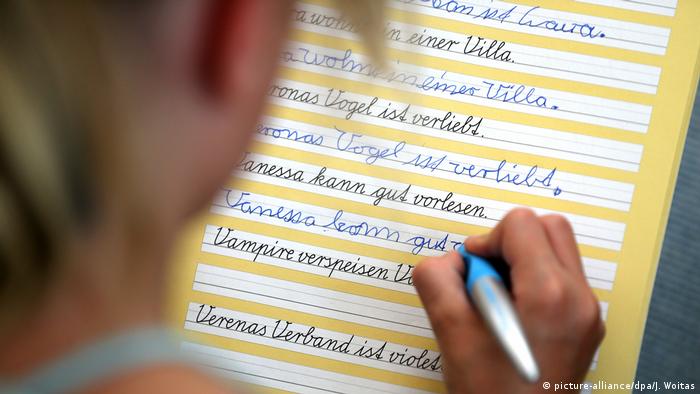 ist Lava.
wohnt in einer Villa.
wohnt in einer Villa.
Veronas Vogel ist verliebt.
Veronas Vogel ist verliebt.
Vanessa kann gut vorlesen.
Vanessa kann gut
Vampire verspeisen
Verenas Verband ist violett
© picture-alliance/dpa/J. Woitas